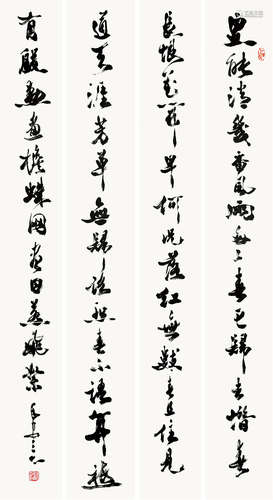 更能消幾番風雨匆々春又歸去惜春
長恨花開早何況落紅無數春且住見
道天涯芳草無歸路怨春不語算祇
有殷勤畫檐蛛網盡日惹飛絮